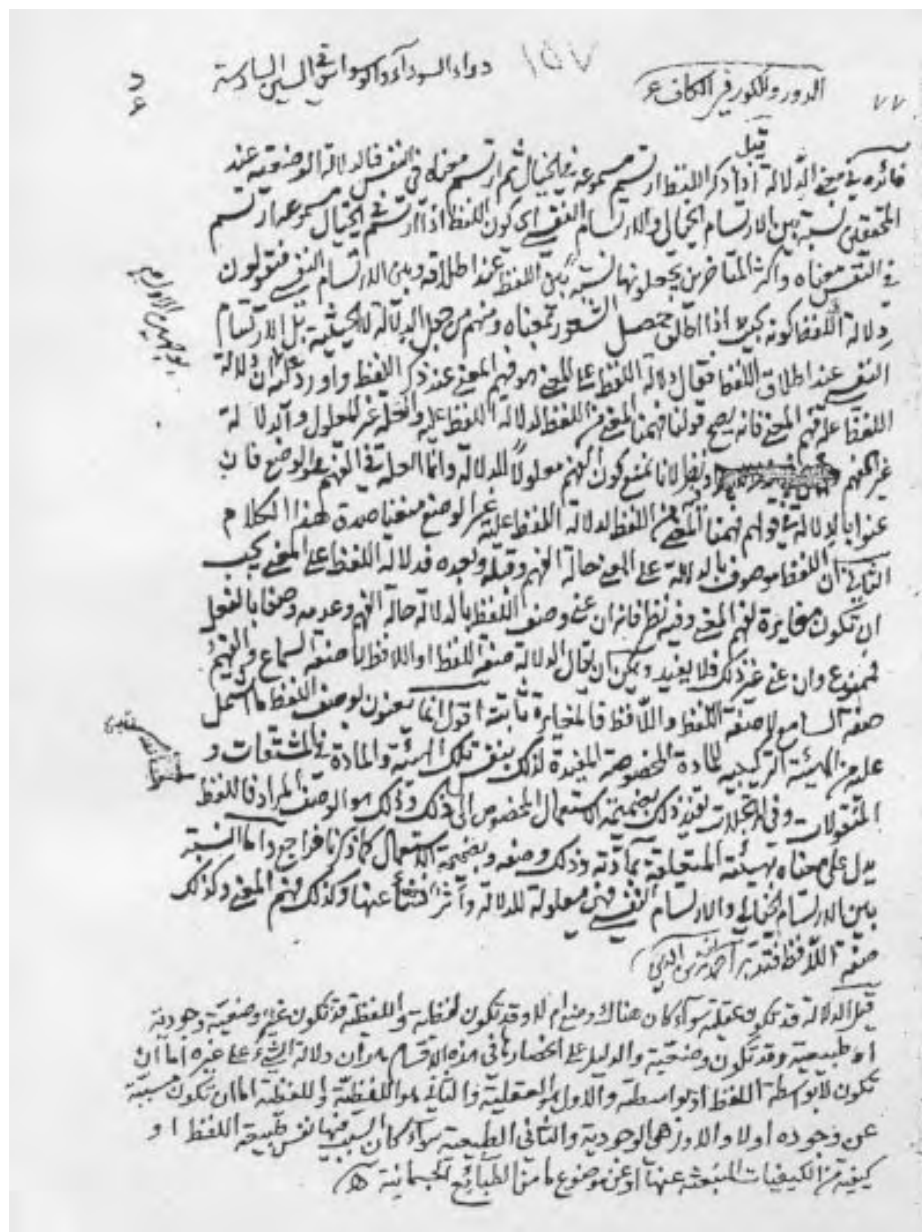 ١٥٧
دواء السوداء والوسواس في السين السادسة
الدور والكور في الكاف ع
٧٧
قيل
فائدة في معنى الدلالة اذا ذكر اللفظ ارتسم مسموعه في الخيال ثم ارتسم معناه في النفس فالدلالة الوضعية عند
المحققين نسبة بين الارتسام الخيالي والارتسام النفسي اي كون اللفظ اذا ارتسم في الخيال مسموعه ارتسم
في النفس معناه واكثر المتاخرين يجعلونها نسبة بين اللفظ عند اطلاقه وبين الارتسام النفسي فيقولون
دلالة اللفظ كونه بحيث اذا اطلق حصل الشعور بمعناه ومنهم من جعل الدلالة للحيثية بل الارتسام
النفسي عند اطلاق اللفظ فقال دلالة اللفظ على المعنى هو فهم المعنى عند ذكر اللفظ واورد عليه ان دلالة
اللفظ علة فهم المعنى فانه يصح قولنا فهمنا المعنى من اللفظ لدلالة اللفظ عليه والعلة غير المعلول والدلالة
غير الفهم وفيه نظر لانا نمنع كون الفهم معلولا للدلالة وانما العلة في الفهم هو الوضع فان
عنوا بالدلالة في قولهم فهمنا المعنى من اللفظ لدلالة اللفظ عليه غير الوضع منعنا صدق هذا الكلام
الثاني ان اللفظ موصوف بالدلالة على المعنى حالة الفهم وقبله وبعده فدلالة اللفظ على المعنى يجب
ان تكون مغايرة لفهم المعنى وفيه نظر فانه ان عني وصف اللفظ بالدلالة حالة الفهم وعدمه وصفا بالفعل
فممنوع وان عني غير ذلك فلا يفيد ويمكن ان يقال الدلالة صفة اللفظ او اللافظ لا صفة السماع والفهم
صفة السامع لا صفة اللفظ واللافظ فالمغايرة ثابتة اقول انما يعنون بوصف اللفظ ما اشتمل
عليه من الهيئة التركيبية للمادة المخصوصة المفيدة لذلك بنفس تلك الهيئة والمادة في المشتقات و
المنقولات وفي المرتجلات تفيد ذلك بضميمة الاستعمال المخصوص الى ذلك وذلك هو الوصف المراد فاللفظ
يدل على معناه بهيئته المتعلقة بمادته وذلك وصفه وبضميمة الاستعمال كما ذكرنا فراجع واما النسبة
بين الارتسام الخيالي والارتسام النفسي فهي معلولة للدلالة واثر نشأ عنها وكذلك فهم المعنى وكذلك
صفة اللافظ فتدبر احمد بن زين الدين
قيل الدلالة قد تكون عقلية سواء كان هناك وضع ام لا وقد تكون لفظية واللفظية قد تكون غير وضعية وجودية
او طبيعية وقد تكون وضعية والدليل على انحصارها في هذه الاقسام هو ان دلالة الشيء على غيره اما ان
تكون لا بواسطة اللفظ او بواسطته والاول هو العقلية والثاني هو اللفظية واللفظية اما ان تكون مسببة
عن وجوده اولا والاول هي الوجودية والثاني الطبيعية سواء كان السبب فيها نفس طبيعة اللفظ او
كيفية من الكيفيات المنبعثة عنها او عن موضوع ما من الطبائع الجسمانية